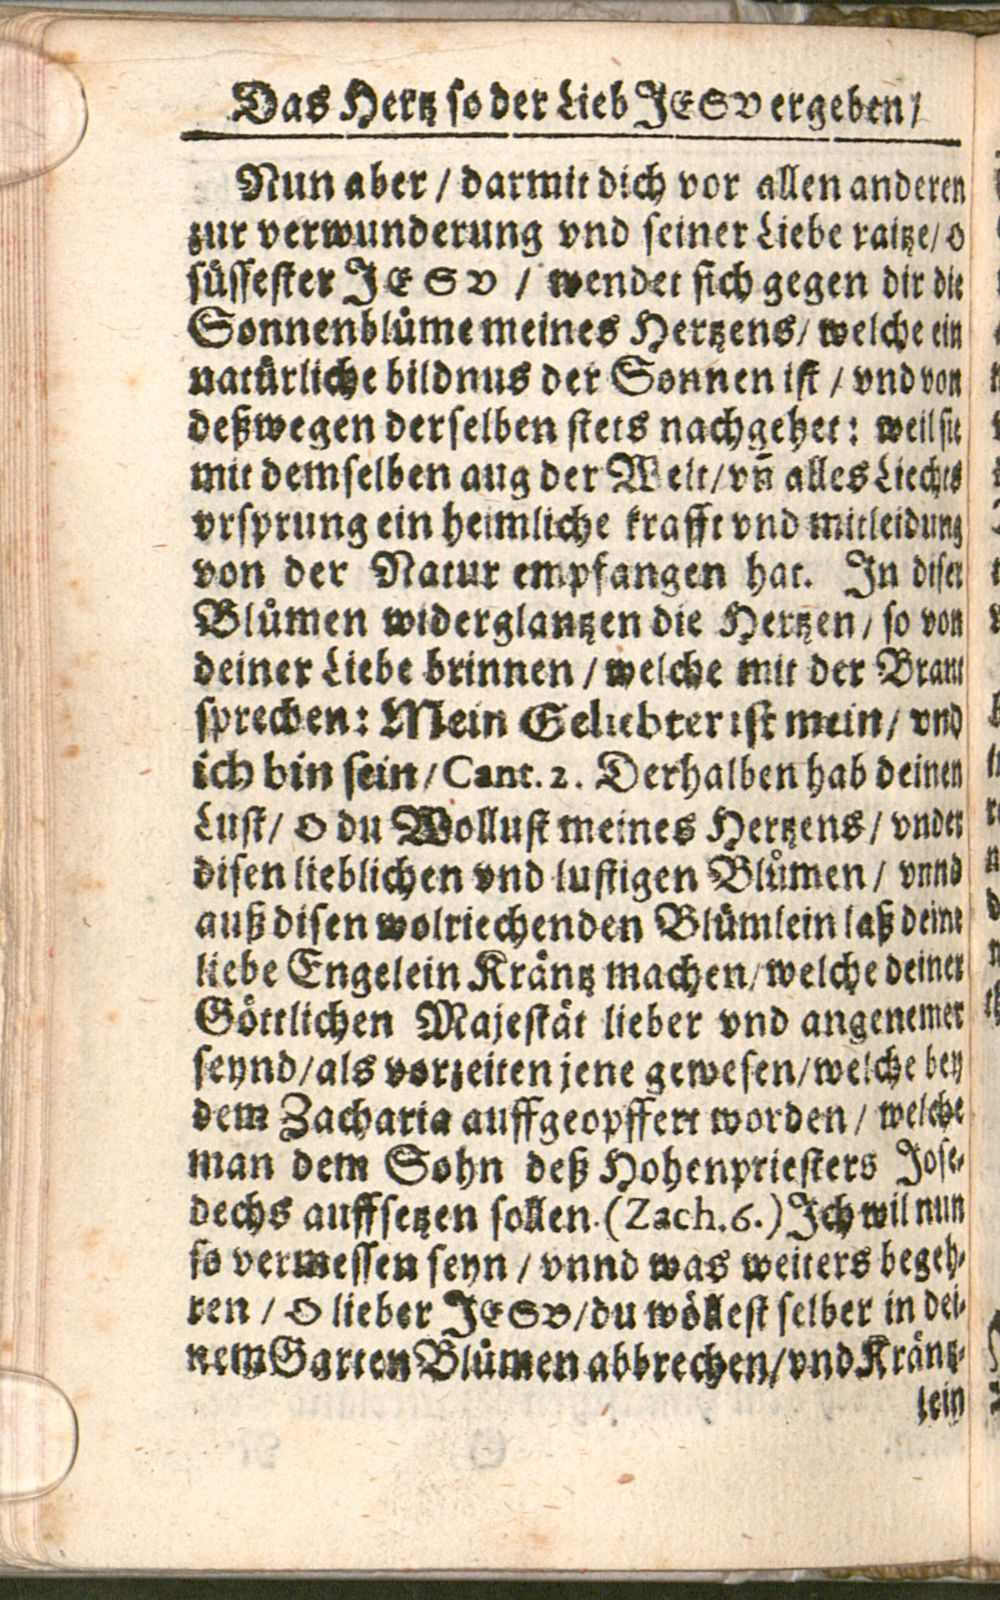 Das Hertz so der Lieb JESV ergeben/
Nun aber / darmit dich vor allen anderen
zur verwunderung vnd seiner Liebe raitze/ O
süssester JESV / wendet sich gegen dir die
Sonnenblůme meines Hertzens/ welche ein
natürliche bildnus der Sonnen ist / vnd von
deßwegen derselben stets nachgehet: weil sie
mit demselben aug der Welt/ vñ alles Liechts
vrsprung ein heimliche krafft vnd mitleidung
von der Natur empfangen hat. In diser
Blůmen widerglantzen die Hertzen/ so von
deiner Liebe brinnen / welche mit der Braut
sprechen: Mein Geliebter ist mein/ vnd
ich bin sein/ Cant. 2. Derhalben hab deinen
Lust/ O du Wollust meines Hertzens/ vnder
disen lieblichen vnd lustigen Blůmen/ vnnd
auß disen wolriechenden Blümlein laß deine
liebe Engelein Kräntz machen/ welche deiner
Göttlichen Majestät lieber vnd angenemer
seynd/ als vorzeiten jene gewesen/ welche bey
dem Zacharia auffgeopffert worden/ welche
man dem Sohn deß Hohenpriesters Jose-
dechs auffsetzen sollen. (Zach. 6.) Ich wil nun
so vermessen seyn / vnnd was weiters begeh-
ren / O lieber JESV/ du wöllest selber in dei-
nem Garten Blůmen abbrechen/ vnd Kräntz-
lein